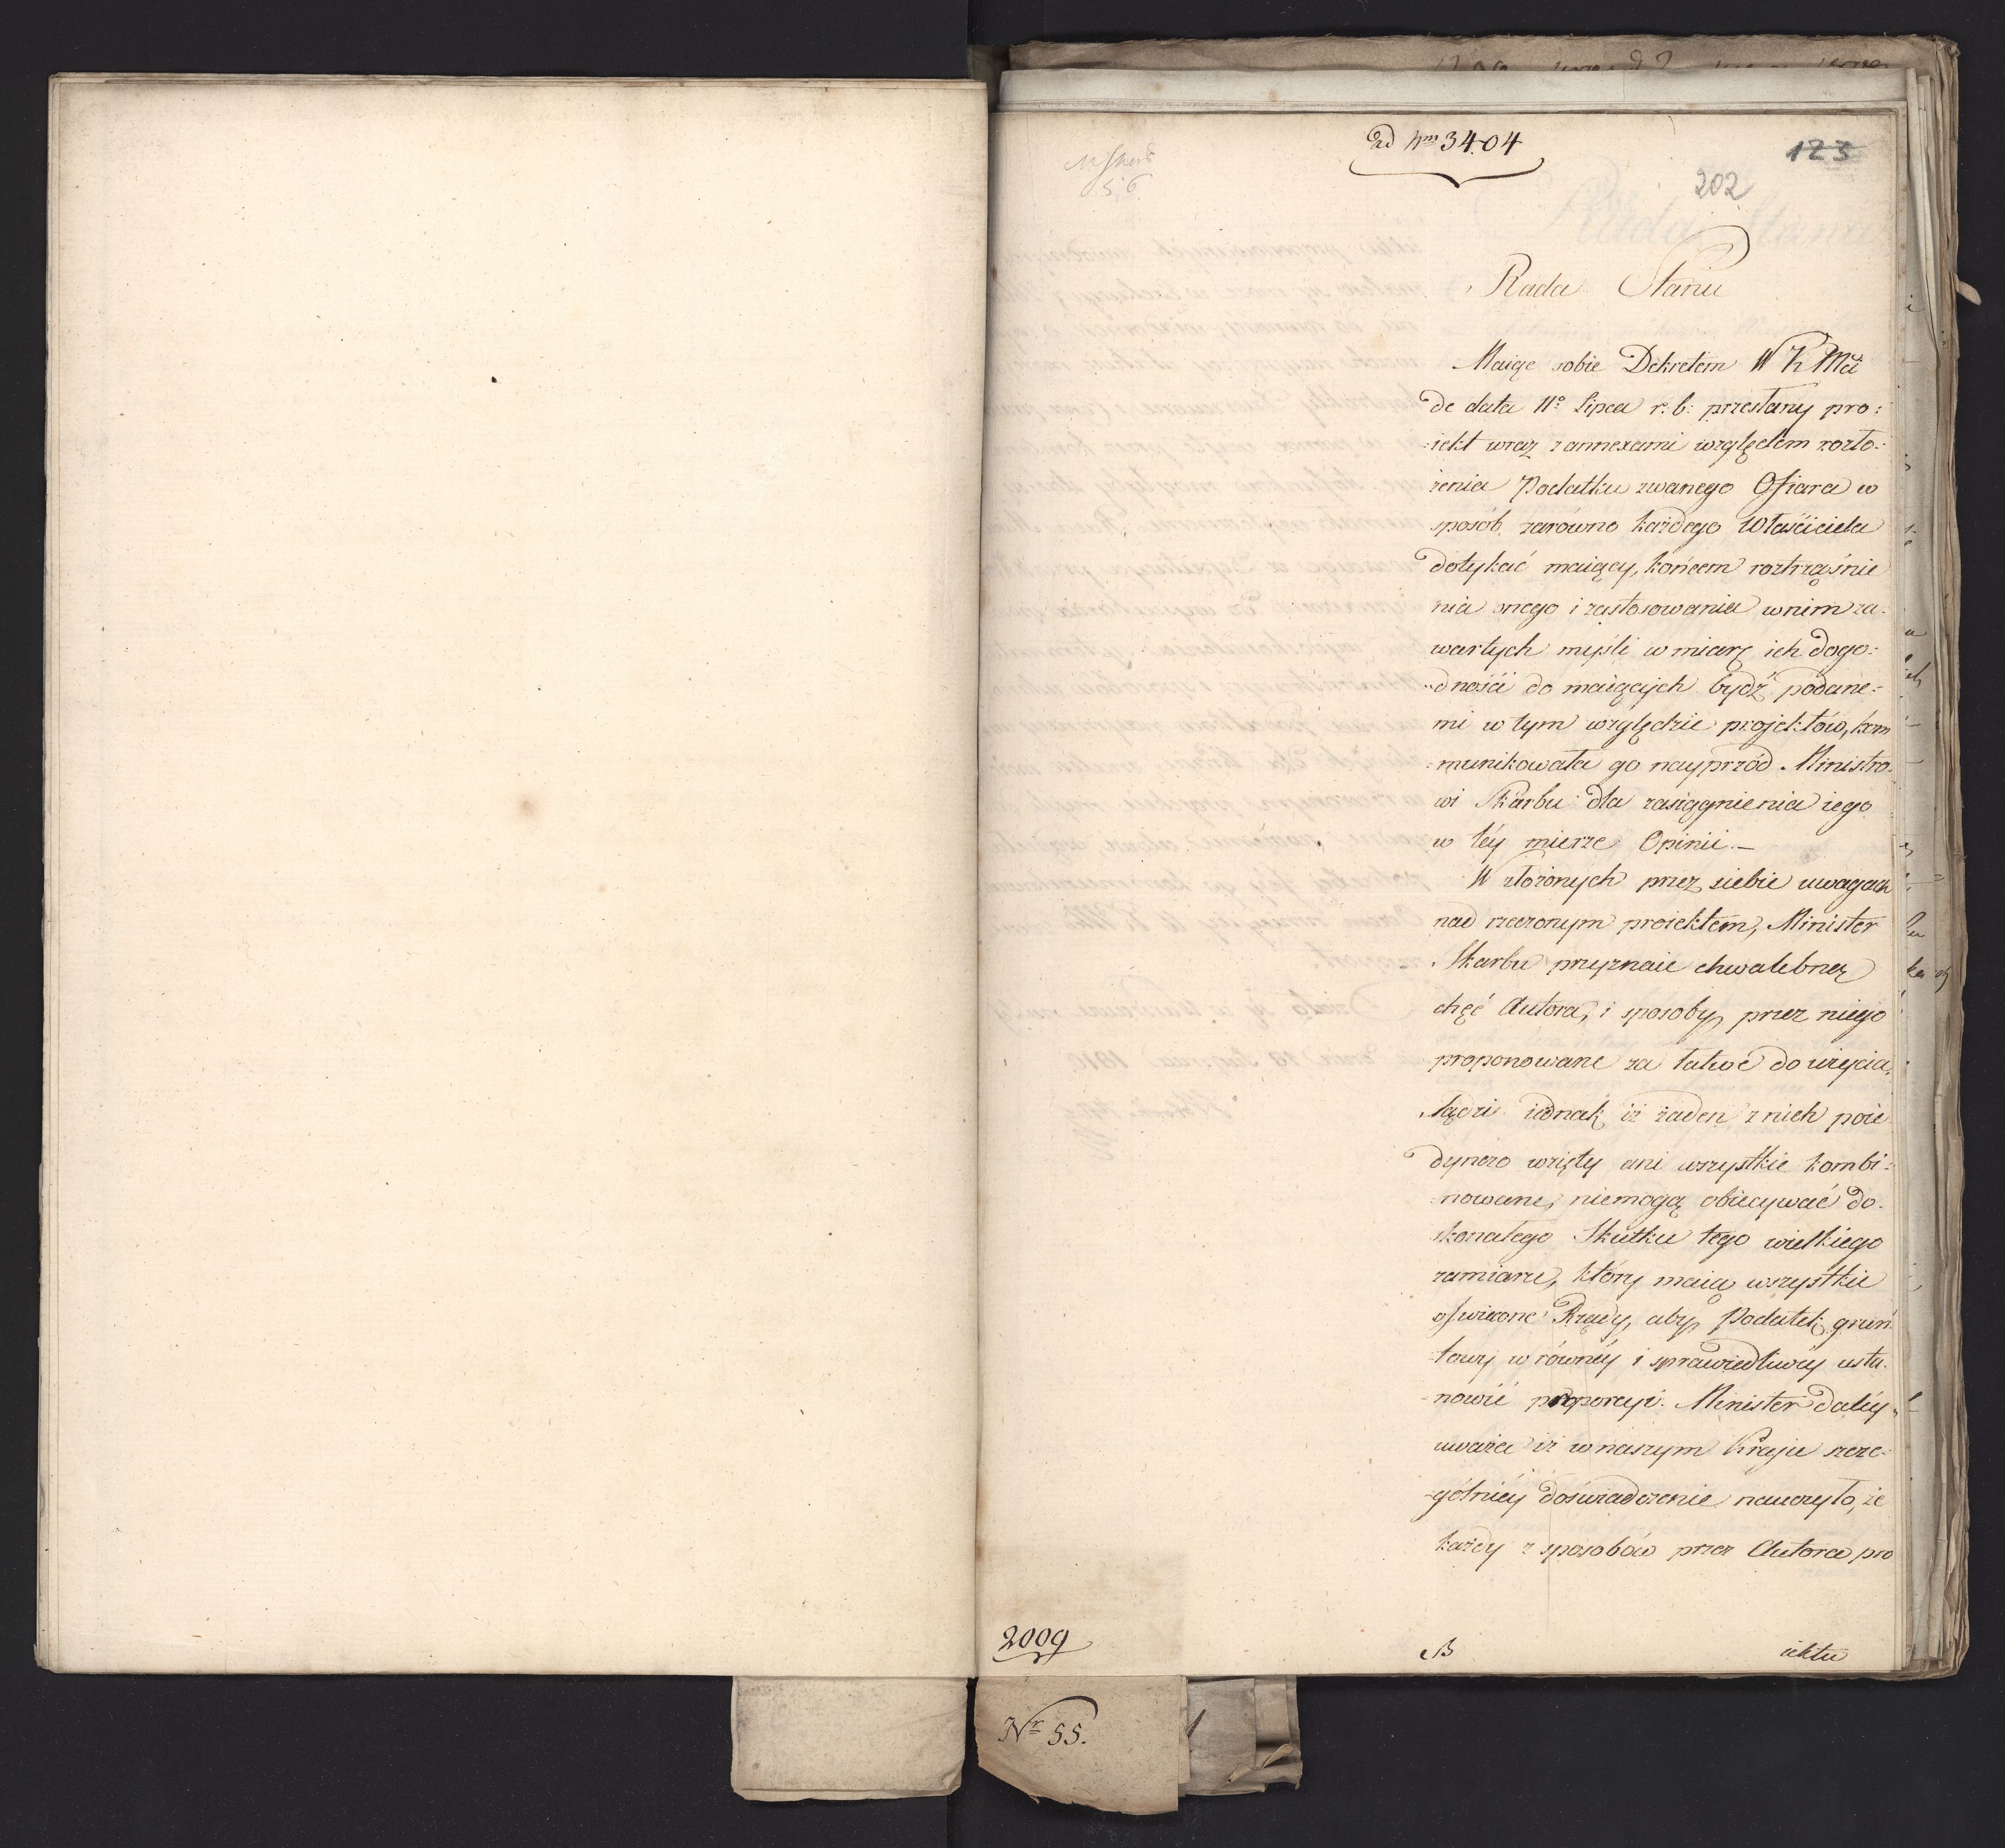 ad Nm 3404
123
202
M Skarb
56
Rada Stanu
Maiąc sobie Dekretem W K Mci
de data 11o Lipca r: b: przesłany pro:
:iekt wraz z annexami względem rozło:
żenia Podatku zwanego Ofiara w
sposób zarówno każdego Właściciela
dotykać maiący, końcem roztrząśnie
nia onego i zastosowania w nim za-
wartych myśli w miarę ich dogo:
:dności do maiących bydź podane-
mi w tym względzie projektów, kom
:munikowała go nayprzód Ministro-
wi Skarbu dla zasiągnienia iego
w téy mierze Opinii.—
W złożonych przez siebie uwagach
nad rzeczonym proiektem, Minister
Skarbu przyznaie chwalebną
chęć Autora, i sposoby przez niego
proponowane za łatwe do użycia,
sądzi iednak iż żaden z nich poie
dynczo wzięty ani wszystkie kombi:
:nowane, niemogą obiecywać do-
skonałego Skutku tego wielkiego
zamiaru, który maią wszystkie
oświecone Rządy, aby Podatek grun
-towy w równéy i sprawiedliwéy usta-
-nowić proporcyi. Minister daléy
uważa iż w naszym Kraju szcze-
-gólniéy doświadczenie nauczyło, że
każdy z sposobów przez Autora pro
B iektu
2009
Nr 55.